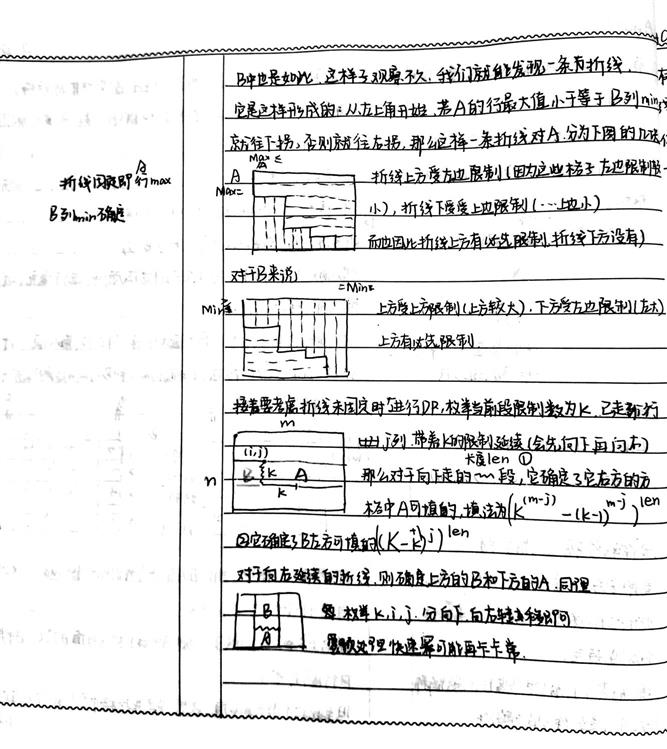 B中也是如此. 这样子观察不久, 我们就能发现一条有折线,
它是这样形成的: 从左上角开始, 若A的行最大值小于等于B列min,
就往下拐, 否则就往右拐, 那么这样一条折线对A, 分为下图的几
折线固定即 A行max
B列min确定
Max ≤
A
Max=
折线上方受左边限制(因为这些格子左边限制
小), 折线下受上边限制(…上边小)
而也因此折线上方有必选限制, 折线下方没有)
对于B来说
=Min
Min
上方受上方限制(上方较大), 下方受左边限制(左大)
上方有必选限制
接着要考虑折线未固定时进行DP, 枚举当前段限制数为K, 已走到i行
j列, 带着K的限制延续(会先向下再向右)
m
n
(i,j)
B
k
A
k
长度len ①
那么对于向下走的~段, 它确定了它右方的方
格中A可填的, 填法为(K^(m-j) - (k-1)^(m-j))^len
②它确定了B左方可填的((K-k+1)^j)^len
对于向右延续的折线, 则确定上方的B和下方的A, 同理
B
A
枚举k,i,j. 分向下, 向右转移即可
预处理快速幂可能再卡卡常.